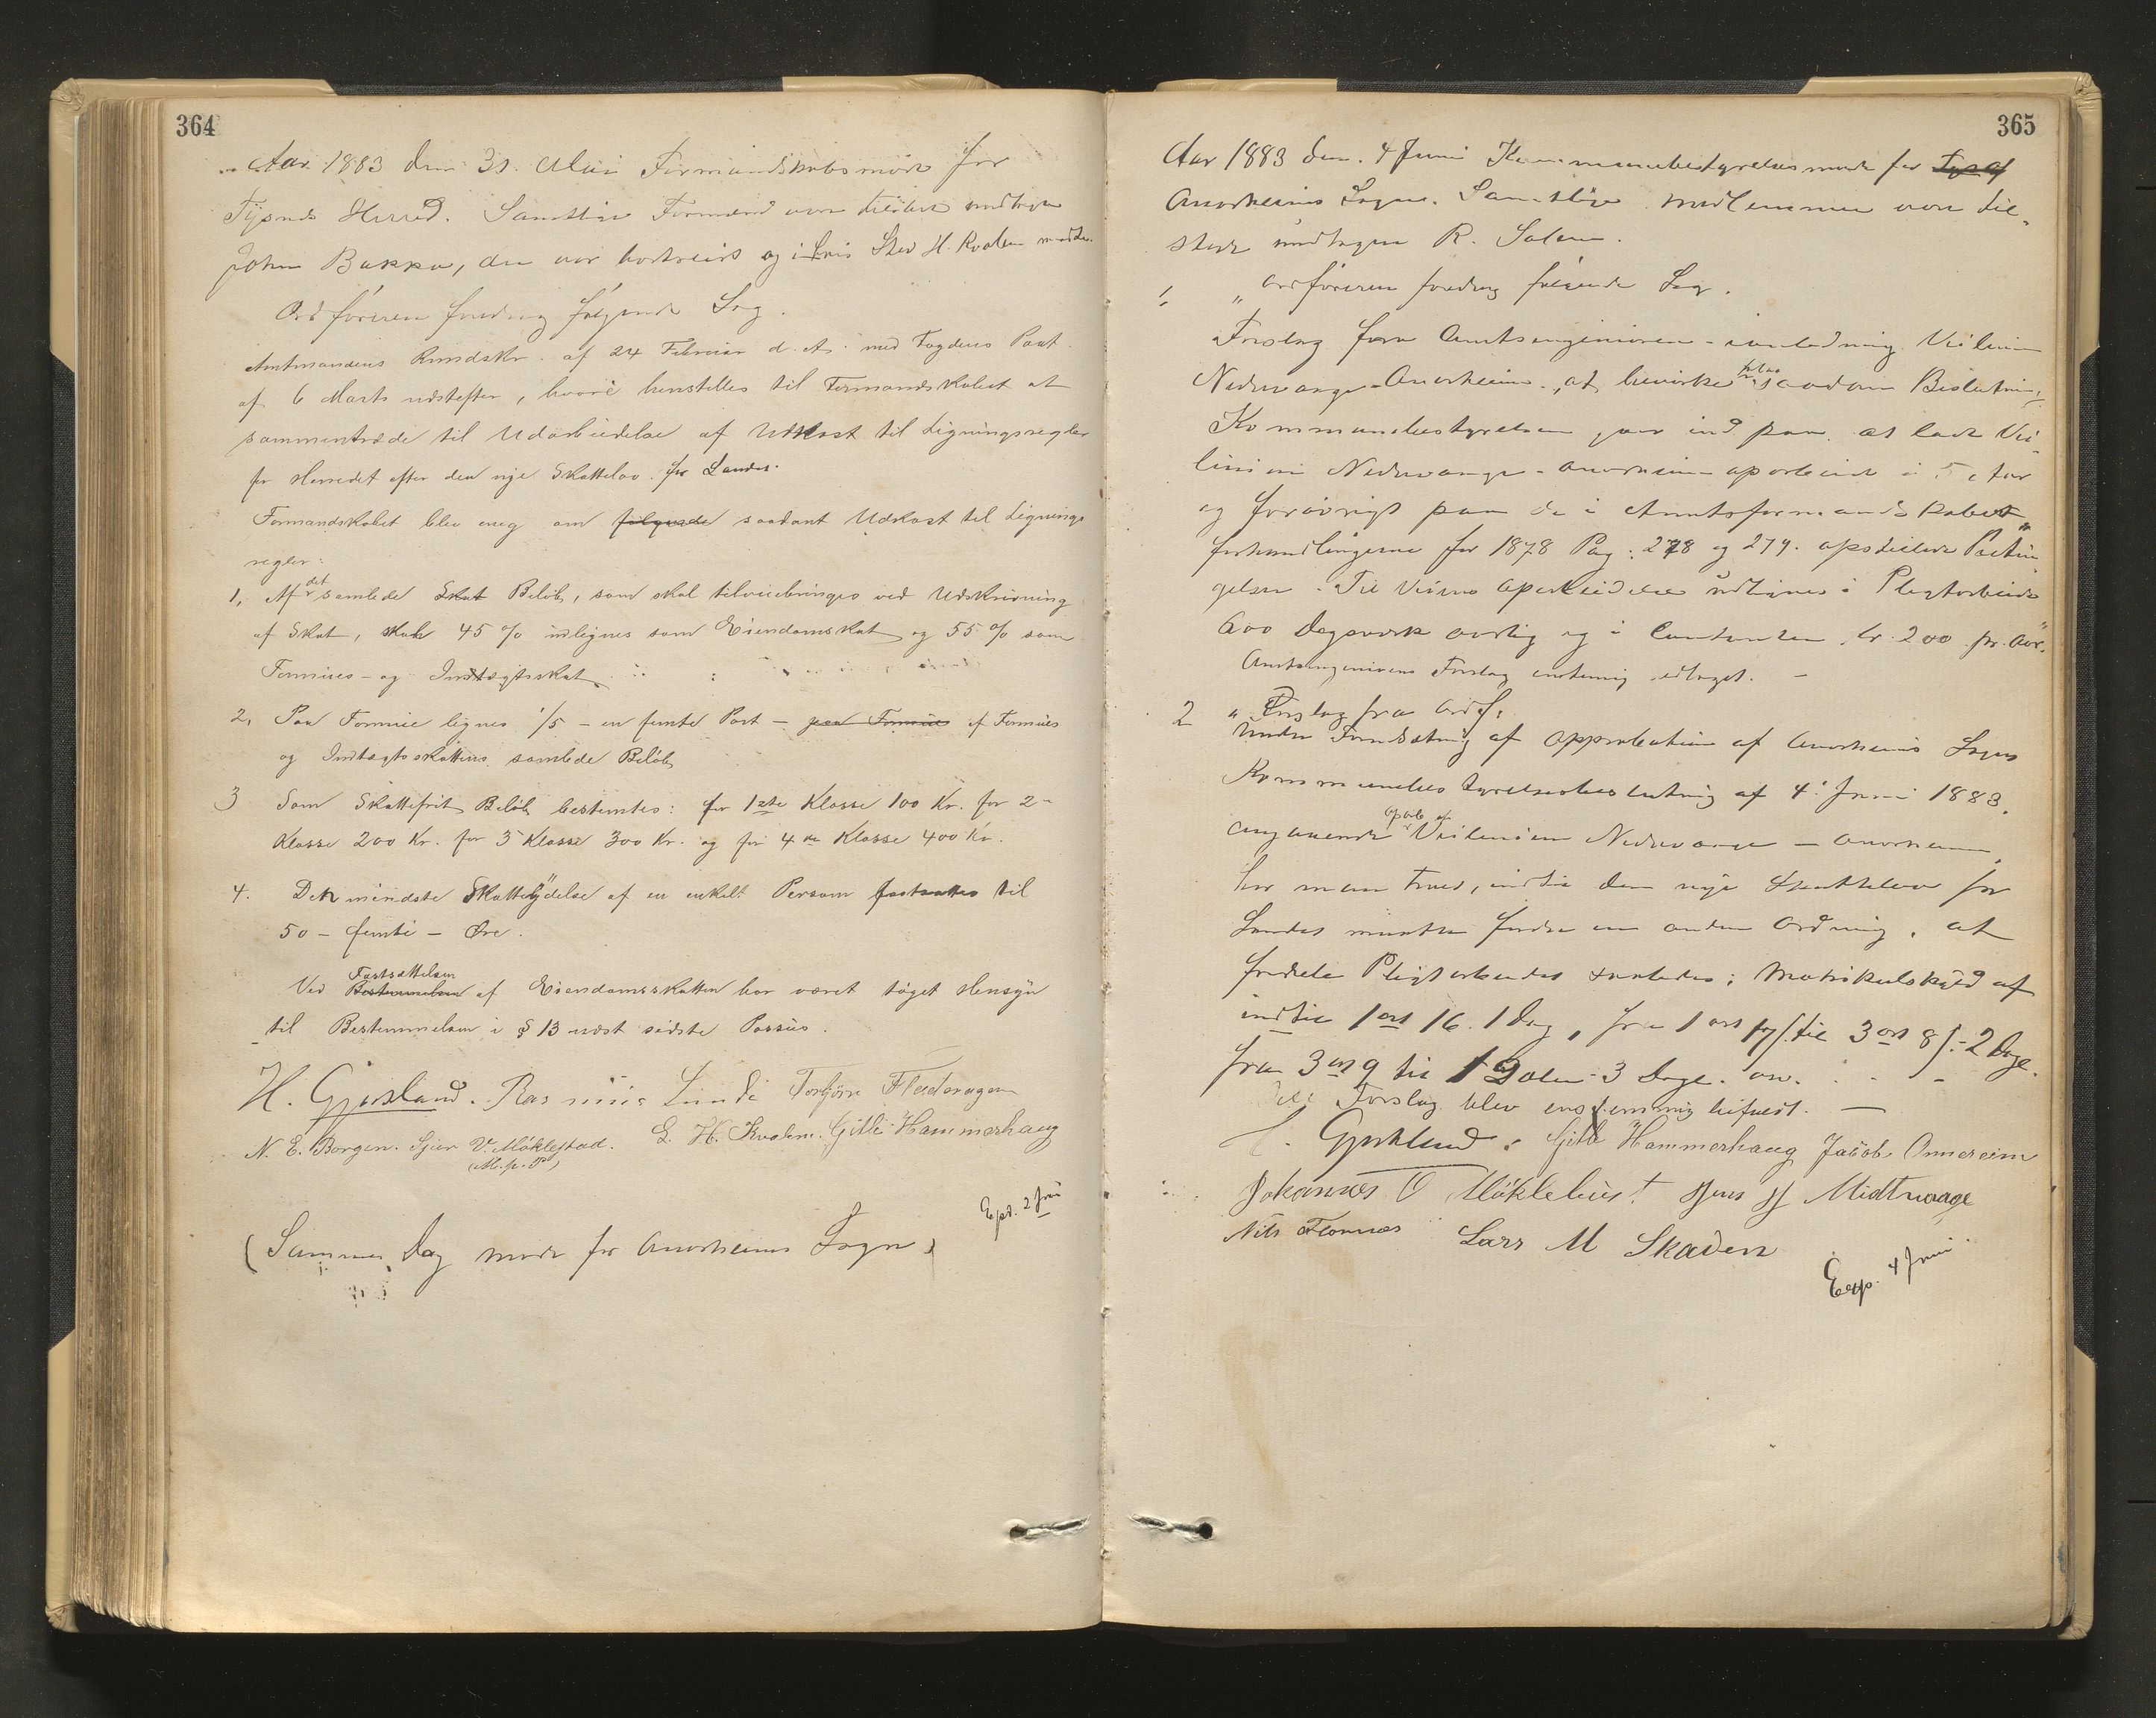 364
Aar 1883 den 31. Mai Formandskabsmöde for
Tysnes Herred. Samtlige Formænd var tilstede undtagen
John Bakka, der var bortreist og i hvis Sted H. Kvalen mødte.
Ordføreren foredrog følgende Sag.
Amtmandens Rundskr. af 24 Februar d. A. med Fogdens Paat.
af 6 Marts udstefter, hvori henstilles til Formandskabet at
sammentræde til Udarbeidelse af Udkast til Ligningsregler
for Herredet efter den nye Skattelov for Landet.
Formandskabet blev enig om følgende saadant Udkast til Lignings
regler:
1, Af det samlede Skat Beløb, som skal tilveiebringes ved Udskrivning
af Skat, skal 45 % udlignes som Eiendomskat og 55 % som
Formues- og Indtægtsskat.
2, Paa Formue lignes 1/5 - en femte Part - paa Formues af Formues
og Indtægtsskattens samlede Beløb
3 Som Skattefrit Beløb bestemtes: for 1ste Klasse 100 Kr. for 2-
Klasse 200 Kr. for 3 Klasse 300 Kr. og for 4de Klasse 400 Kr.
4. Den mindste Skatteydelse af en enkelt Person fastsattes til
50 - femti - Øre.
Ved Bestemmelsen Fastsættelsen af Eiendomsskatten har været taget Hensyn
til Bestemmelsen i § 13 næst sidste Passus.
H. Gjersland. Rasmus Lunde Torbjørn Fladeragen
N. E. Borgen. Sjur V. Möklestad. L. H. Kvalen. Gitle Hammerhaug
(M. p. P)
Exp. 2 Juni
(Samme Dag møde for Anorheims Sogn)
365
Aar 1883 den. 4 Juni Kommunebestyrelsesmøde for
Anorheims Sogn. Samtlige Medlemmer var til-
stede undtagen R. Salen.
1, " Ordføreren foredrog følgende Sag.
Forslag fra Amtsingeniøren i anledning Veilinien
Nedrevaage-Anorheim, at bevirke saadan Beslutning,
Kommunebestyrelsen gaar ind paa at lade Vei-
linien Nedrevaage-Anorheim oparbeide i 5 Aar
og forøvrigt paa de i Amtsformandskabets
forhandlingerne for 1878 Pag: 278 og 279. opstillede Betin-
gelser. Til Veiens Oparbeidelse udlignes i Pligtarbeide
600 Dagsværk aarlig og i Contanter kr. 200 pr. Aar.
Amtsingeniørens Forslag enstemmig vedtaget. -
2 " Forslag fra Ordf:
Under Forudsætning af Approbation af Anorheims Sogns
Kommunebestyrelsesbeslutning af 4. Juni 1883.
angaaende oparb. af Veilinien Nedrevaage - Anorheim,
har man troet, indtil den nye Skattelov for
Landet maatte fordre en anden Ordning, at
fordele Pligtarbeidet saaledes: Matrikulskyld af
indtil 1 ort 16. 1 Dag, fra 1 ort 17 s. til 3 ort 8 s. - 2 Dage.
fra 3 ort 9 til 1 Daler 3 Dage. osv.
Forslag blev enstemmig bifaldt. —
H. Gjersland. Gitle Hammerhaug Jacob Onnereim
Johannes O Möklebust Jens J Midtvaage
Nils Flornes Lars M Skaden
Exp. 4 Juni